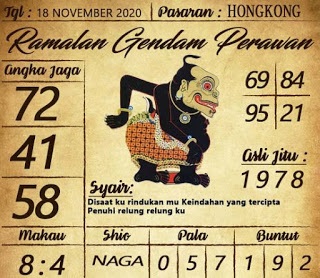 Tgl : 18 NOVEMBER 2020 Pasaran : HONGKONG
Ramalan Gendam Perawan
Angka Jaga
72
41
58
69 84
95 21
Asli Jitu :
1978
Syair:
Disaat ku rindukan mu Keindahan yang tercipta
Penuhi relung relung ku
Makau Shio Pala Buntut
8:4 NAGA 0 5 7 1 9 2